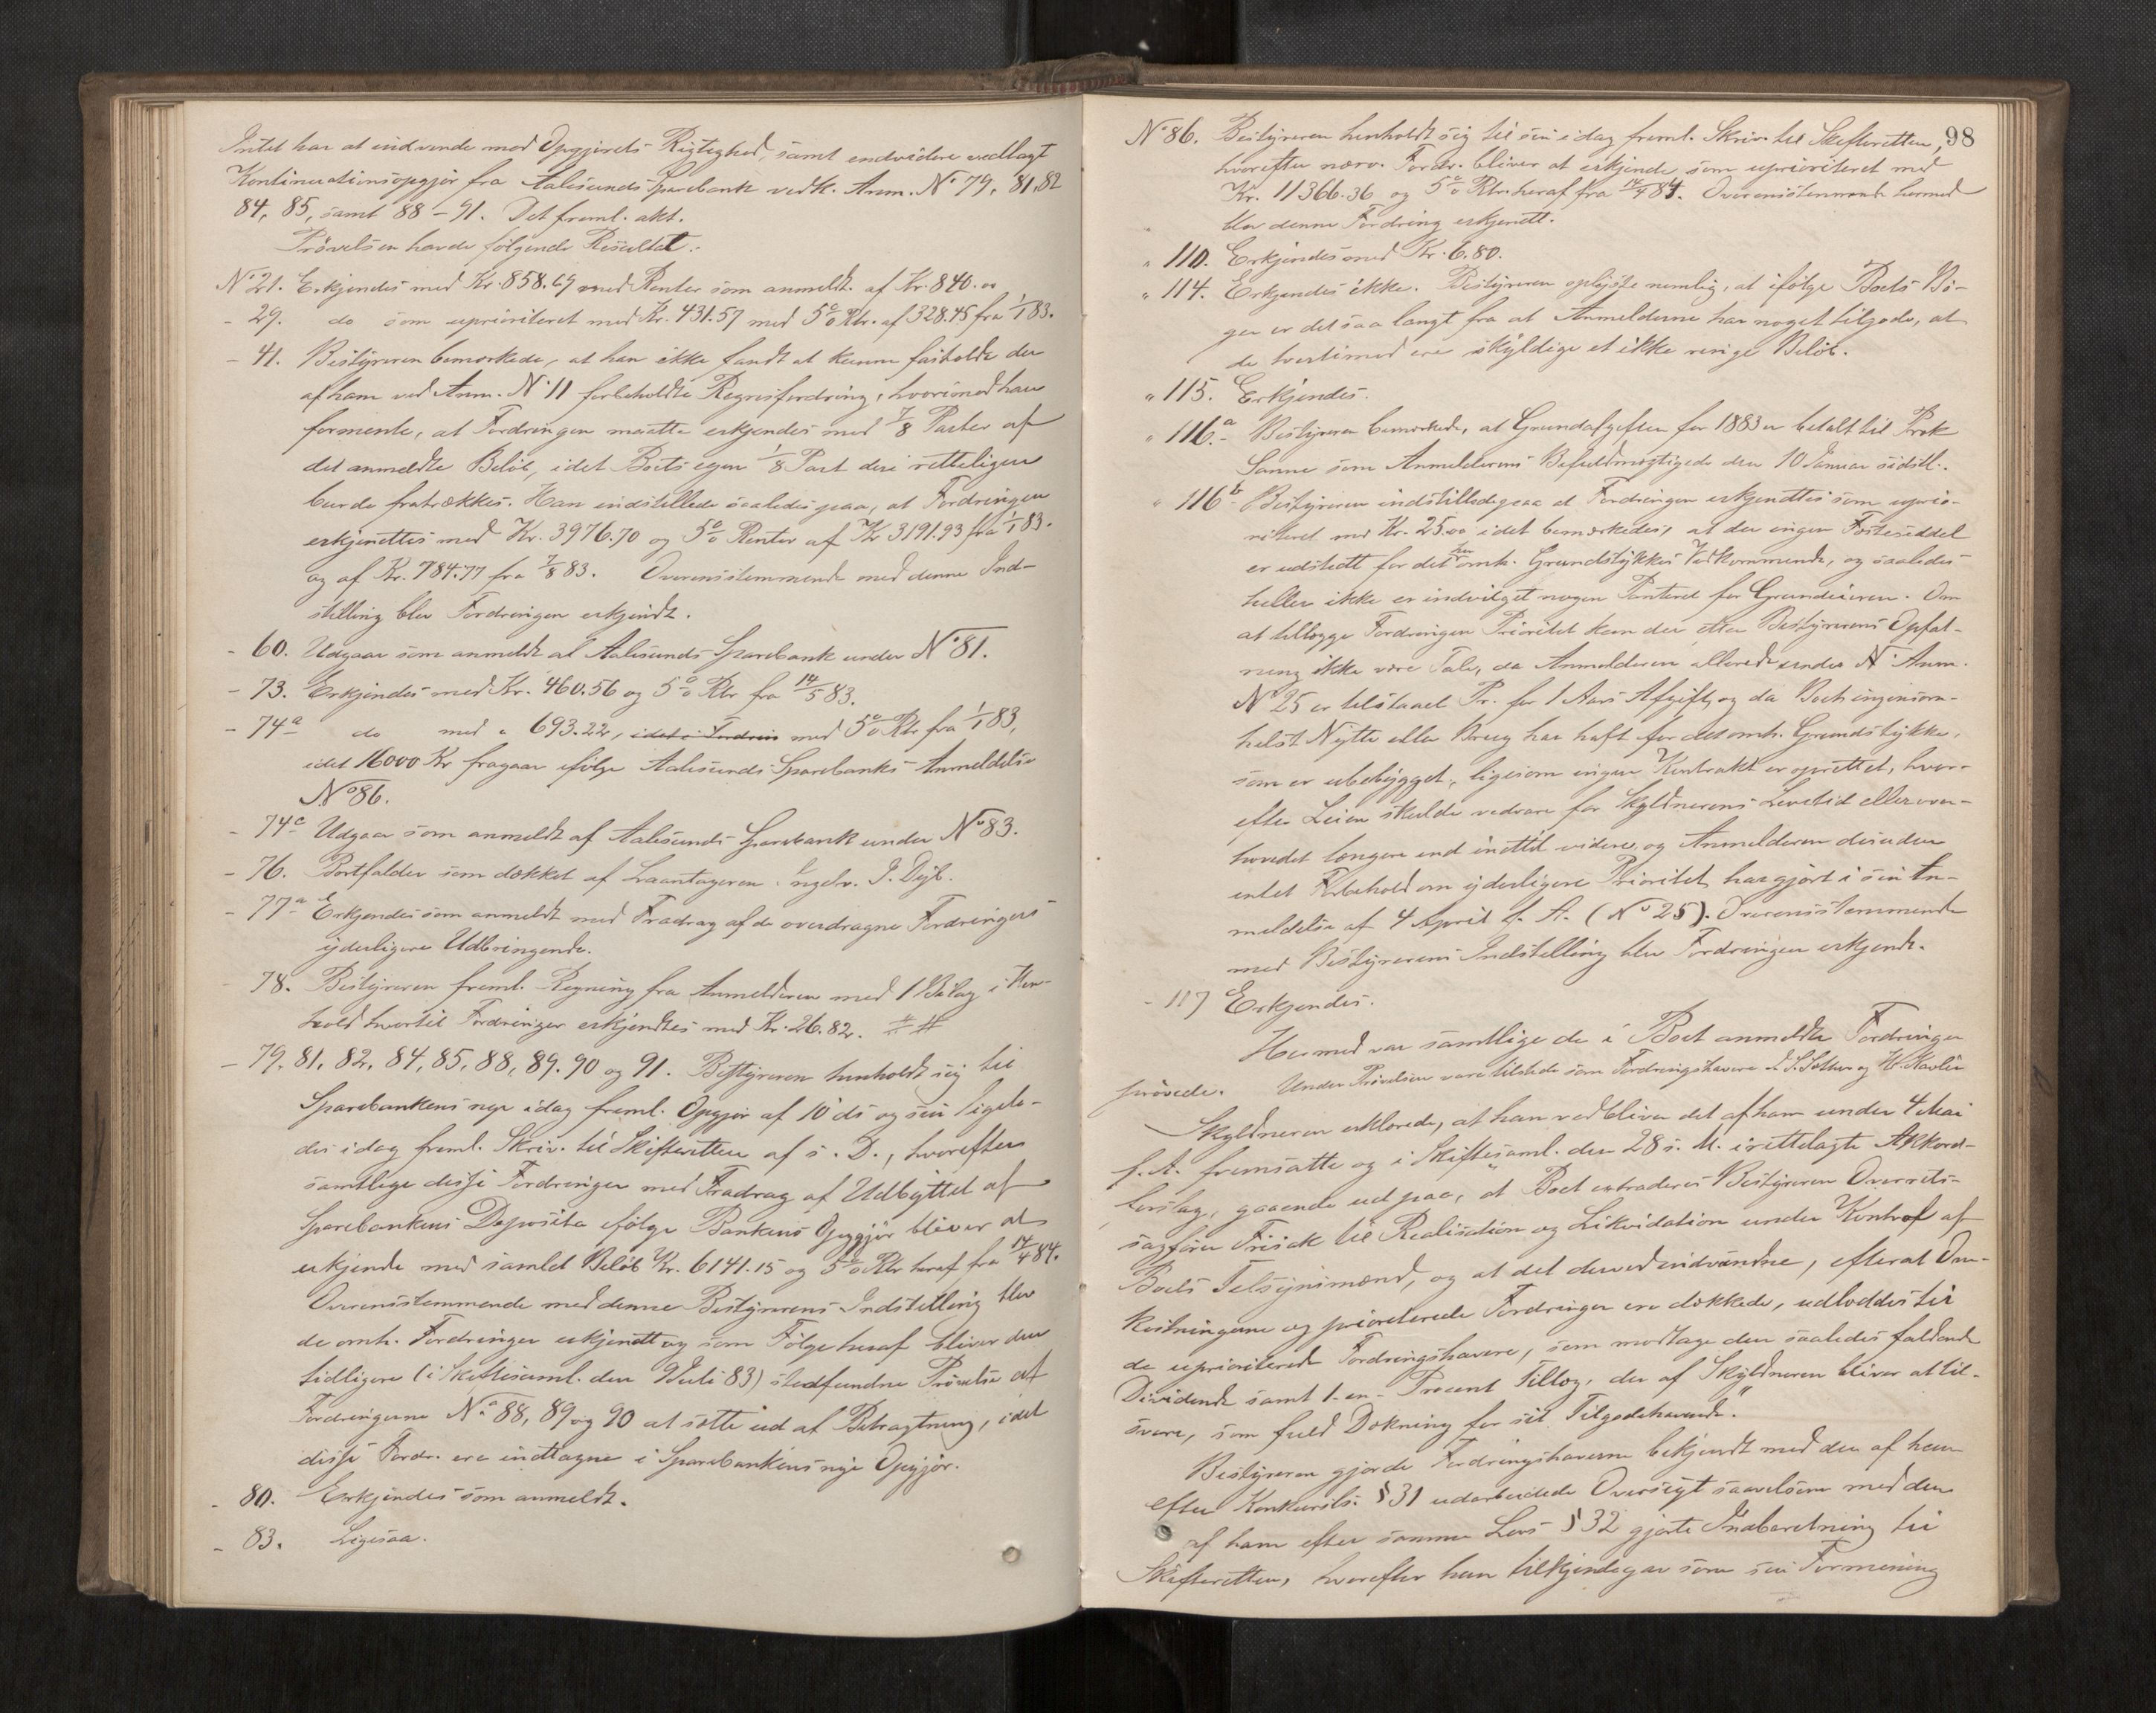 Intet har at indvende mod Opgjørets Rigtighed, samt endvidere vedlagt
Kontinuationsopgjør fra Aalesunds Sparebank vedk. Anm. No 79, 81, 82
84, 85, samt 88 – 91. Det freml. akt.
Prøvelsen havde følgende Resultat:
No 21. Erkjendes med Kr. 858.69 med Renter som anmeldt af Kr. 840.00
- 29. do som uprioriteret med Kr. 431.57 med 5% Rtr. af 328.45 fra 1/1 83.
- 41. Bestyreren bemærkede, at han ikke fandt at kunne fastholde den
af ham ved Anm. No 11 forbeholdte Regresfordring, hvorimod han
formente, at Fordringen maatte erkjendes med 7/8 Parter af
det anmeldte Beløb, idet Boets egen 1/8 Part deri retteligen
burde fratrækkes. Han indstillede saaledes paa, at Fordringen
erkjendtes med Kr. 3976.70 og 5% Renter af Kr 3191.93 fra 1/1 83.
og af Kr. 784.77 fra 7/8 83. Overensstemmende med denne Ind-
stilling blev Fordringen erkjendt.
- 60. Udgaar som anmeldt af Aalesunds Sparebank under No 81.
- 73. Erkjendes med Kr. 460.56 og 5% Rtr fra 14/5 83.
- 74a do med " 693.22, idet i Fordrin med 5% Rtr fra 1/1 83,
idet 16000 Kr fragaar ifølge Aalesunds Sparebanks Anmeldelse
No 86.
- 74c Udgaar som anmeldt af Aalesunds Sparebank under No 83.
- 76. Bortfalder som dækket af Laantageren J. Dyb.
- 77a Erkjendes som anmeldt med Fradrag af de overdragne Fordringers
yderligere Udbringende.
78. Bestyreren freml. Regning fra Anmelderen med 1 Bilag i Hen-
hold hvortil Fordringen erkjendtes med Kr. 26.82. # #
- 79, 81, 82, 84, 85, 88, 89. 90 og 91. Bestyreren henholdt sig til
Sparebankens nye idag freml. Opgjør af 10 ds og sin ligele-
des idag freml. Skriv. til Skifteretten af s. D., hvorefter
samtlige disse Fordringer med Fradrag af Udbyttet af
Sparebankens Deposita ifølge Bankens Opgjør bliver at
erkjende med samlet Beløb Kr. 6141.15 og 5% Rtr heraf fra 14/4 84.
Overensstemmende med denne Bestyrerens Indstilling blev
de omh. Fordringer erkjendt og som Følge heraf bliver den
tidligere (i Skiftesaml. den 9 Juli 83) stedfundne Prøvelse af
Fordringerne No 88, 89 og 90 at sætte ud af Betragtning, idet
disse Fordr. ere indtagne i Sparebankens nye Opgjør.
- 80. Erkjendes som anmeldt.
- 83. Ligesaa.
98
No 86. Bestyreren henholdt sig til sin idag freml. Skriv. til Skifteretten,
hvorefter nærv. Fordr. bliver at erkjende som uprioriteret med
Kr. 11366.36 og 5% Rtr. heraf fra 14/4 84. Overensstemmende hermed
blev denne Fordring erkjendt.
" 110. Erkjendes med Kr. 6.80.
" 114. Erkjendes ikke. Bestyreren oplyste nemlig, at ifølge Boets Bø-
ger er det saa langt fra at Anmelderne har noget tilgode, at
de tvertimod ere skyldige et ikke ringe Beløb.
" 115. Erkjendes.
" 116.a Bestyreren bemærkede, at Grundafgiften for 1883 er betalt til Prok
Sanne som Anmelderens Befuldmægtigede den 10 Januar sidstl.
" 116b Bestyreren indstillede paa at Fordringen erkjendtes som uprio-
riteret med Kr. 25.00 idet bemærkedes, at der ingen Festeseddel
er udstedt for det her omh. Grundstykkes Vedkommende, og saaledes
heller ikke er indvilget nogen Panteret for Grundeieren. Om
at tillægge Fordringen Prioritet kan der efter Bestyrerens Opfat-
ning ikke være Tale, da Anmelderen allerede under N Anm.
No 25 er tilstaaet Pr. for 1 Aars Afgift, og da Boet ingensom-
helst Nytte eller Brug har haft for det omh. Grundstykke,
som er ubebygget, ligesom ingen Kontrakt er oprettet, hvor-
efter Leien skulde vedvare for Skyldnerens Levetid eller over-
hovedet længere end indtil videre, og Anmelderen desuden
intet Forbehold om yderligere Prioritet har gjort i sin An-
meldelse af 4 April f. A. (No 25). Overensstemmende
med Bestyrerens Indstilling blev Fordringen erkjendt.
- 117 Erkjendes.
Hermed var samtlige de i Boet anmeldte Fordringer
prøvede. Under Prøvelsen vare tilstede som Fordringshavere
Skyldneren erklærede, at han vedbliver det af ham under 4 Mai
f. A. fremsatte og i Skiftesaml. den 28 s. M. irettelagte Akkord-
forslag, gaaende ud paa, "at Boet extraderes Bestyreren Overrets-
sagfører Frisak til Realisation og Likvidation under Kontrol af
Boets Tilsynsmænd, og at det derved indvundne, efterat Om-
kostningerne og prioriterede Fordringer ere dækkede, udloddes til
de uprioriterede Fordringshavere, som modtage den saaledes faldende
Dividende samt 1-en- Procent Tillæg, der af Skyldneren bliver at til-
svare, som fuld Dækning for sit Tilgodehavende."
Bestyreren gjorde Fordringshaverne bekjendt med den af ham
efter Konkursls. § 31 udarbeidede Oversigt saavelsom med den
af ham efter samme Lovs § 32 gjorte Indberetning til
Skifteretten, hvorefter han tilkjendegav som sin Formening